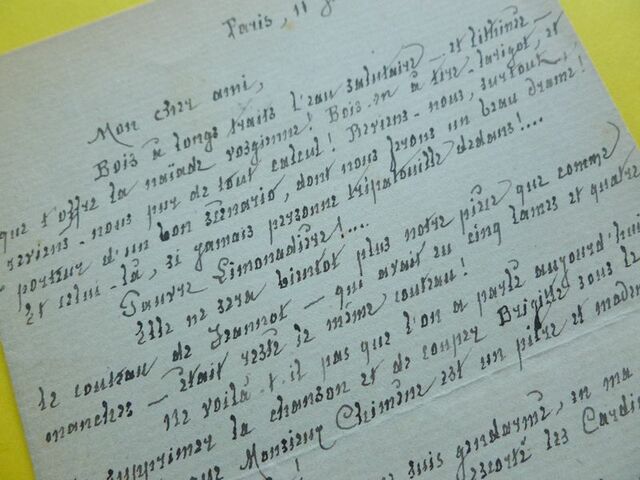 Paris, 11
Mon cher ami,
Bois à longs traits l'eau salutaire — et lithinée —
que t'offre la naïade vosgienne! Bois-en à tire-larigot, et
reviens-nous pur de tout calcul! Reviens-nous, surtout,
porteur d'un bon scénario, dont nous ferons un beau drame!
Et celui-là, si jamais personne tripatouille dedans!....
Pauvre Limonadière!....
Elle ne sera bientôt plus notre pièce que comme
le couteau de Jeannot — qui avait eu cinq lames et quatre
manches — était resté le même couteau!
Ne voilà-t-il pas que l'on a parlé aujourd'hui
supprimer la chanson et de couper Brigitte sous le
que Monsieur Chimène est un pitre et
suis gendarmé, en ma
escorté les